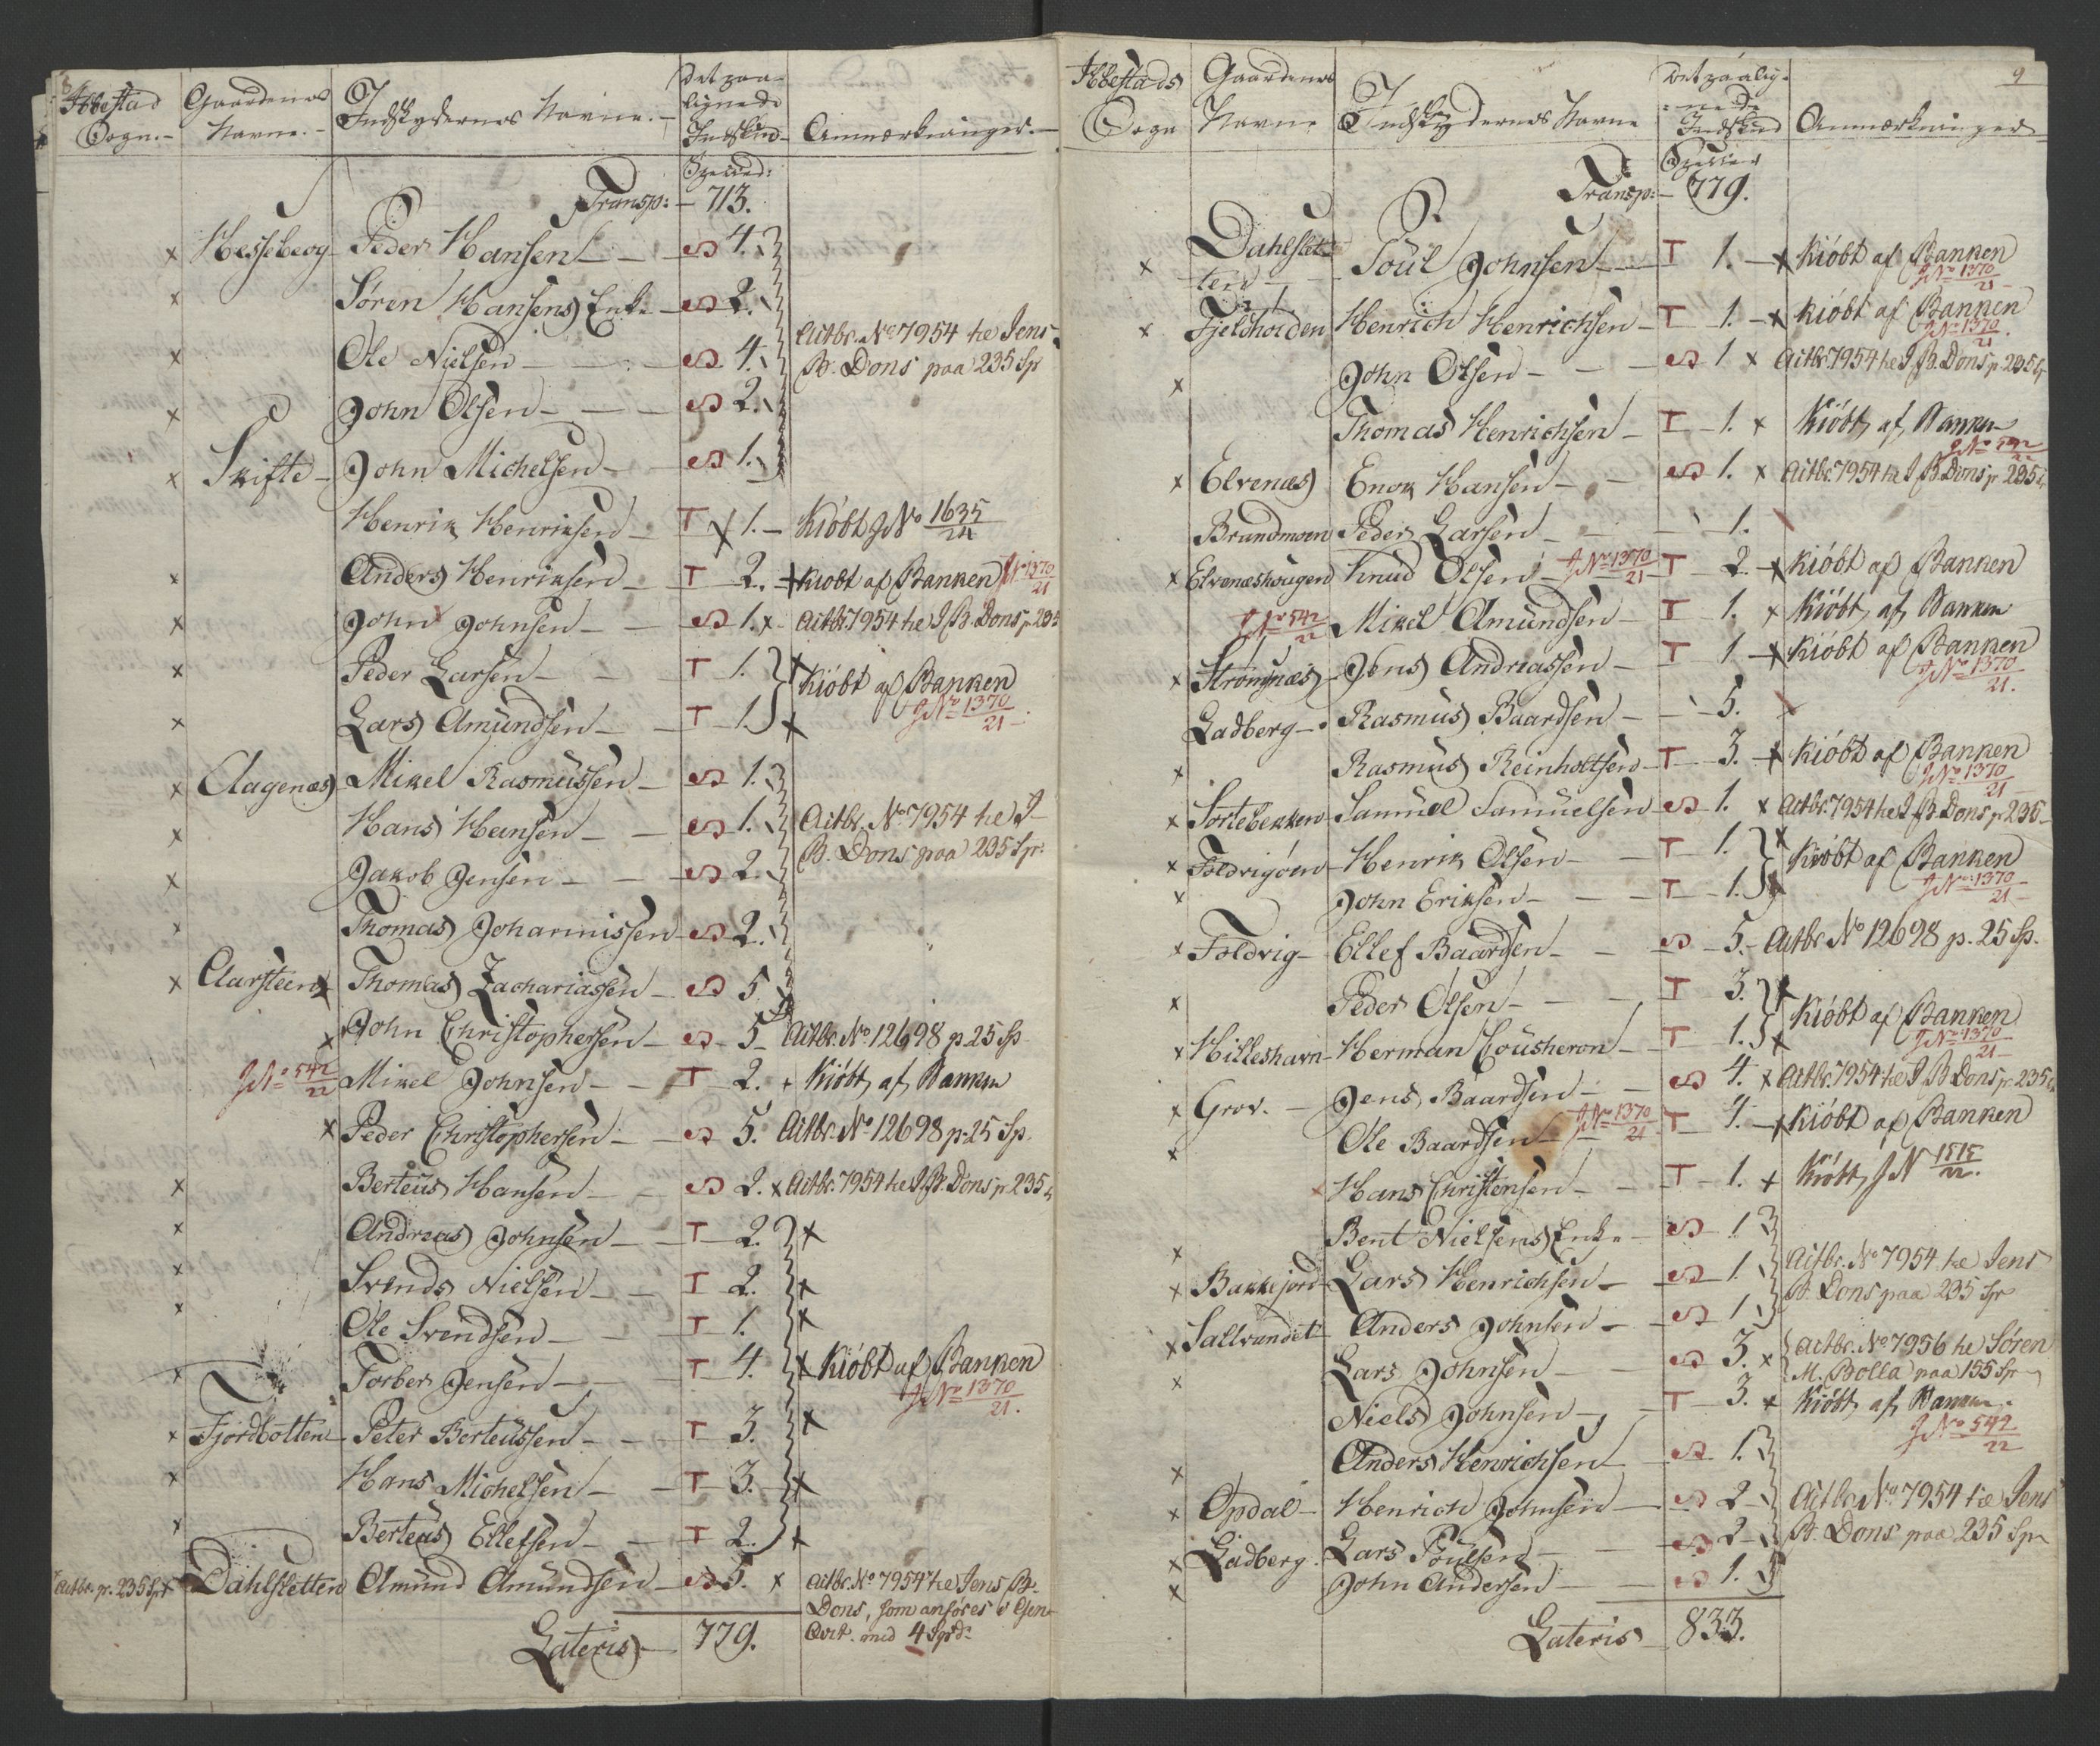 Ibbestad Sogn.- Gaardenes Navne.- Indskydernes Navne.- Det paalignede Indskud Anmærkninger.-
Specied:
Transp: - 713.
x Hesseberg - Peder Hansen - S 4.
x Sören Hansens Enke - S 2.
x Ole Nielsen - S 4. Actbr. No 7954 he Jens B. Dons paa 235 Sp
x John Olsen - S 2.
x Skifte - John Michelsen - S 1.
Henrik Henriksen - T x 1. - Kiöbt J No 1635/24
x Anders Henriksen - T 2. x Kiöbt af Banken J No 1370/21
x John Johnsen - S 1. x Actbr. 7954 he J B. Dons p 235
x Peder Larsen - T 1. x
Kiöbt af Banken J No 1370/21
x Lars Amundsen - T 1. x
x Aagenæs Mikel Rasmussen - S 1.
x Hans Hansen - S 1. Actbr. No 7954 he J B. Dons paa 235 Sp:
x Jakob Jensen - S 2.
x Thomas Johannissen - S 2.
x Aarsteen Thomas Zachariassen - S 5
x John Christophersen - S 5 - Actbr. No 12698 p 25 Sp
J No 542/22 Mikel Johnsen - T 2. x Kiöbt af Banken
x Peder Christophersen - S 5. Actbr. No 12698 p. 25 Sp.
x Berteus Hansen - S 2. x Actbr. 7954 he J. B. Dons p 235
x Andreas Johnsen - T 2. x
x Svends Nielsen - T 2. x
x Ole Svendsen - T 1. x
x Torber Jensen - T 4. x Kiöbt af Banken J No 1370/21.
x Fjordbotten - Peter Berteussen - T 3. x
x Hans Michelsen - T 3. x
x Berteus Ellefsen - T 2. x
Actbr. p. 235 Sp x Dahlsletten Amund Amundsen - S 5. x Actbr. No 7954 he Jens B. Dons, som anföres
med 4 Spd
Lateris - 779.
9
Ibbestads Sogn Gaardenes Navne Indskydernes Navne Det paalignede Indskud Anmærkninger
Specier
Transp: - 779.
x Dahlsletten - Poul Johnsen - T 1. - x Kiöbt af Banken J No 1370/21
x Fjeldholden Henrich Henrichsen - T 1. - x Kiöbt af Banken J No 1370/21.
x John Olsen - S 1 x Actbr. 7954 he J B. Dons p. 235
Thomas Henrichsen - T 1. x Kiöbt af Banken J No 542/22
x Elvenæs Enok Hansen - S 1. x Actbr. 7954 he J B. Dons p 235
Brandmoen Peder Larsen - 1.
x Elvenæshougen Knud Olsen - J No 1370/21 T 2. - x Kiöbt af Banken
J No 542/22 Mikel Amundsen - T 1. x Kiöbt af Banken
x Strömnæs Jens Andriassen - T 1 - x Kiöbt af Banken J No 1370/21.
Ladberg - Rasmus Baardsen - 5.
x Rasmus Reinholtsen - T 3. - x Kiöbt af Banken J No 1370/21
x Sortebekken - Samuel Samuelsen - S 1. x Actbr. 7954 he J B. Dons p 235
x Foldrigöen - Henrik Olsen - T 1. x
Kiöbt af Banken J No 1370/21
x John Eriksen - T 1. x
x Foldvig - Ellef Baardsen - S 5. - Actbr. No 12698 p. 25 Sp.
x Peder Olsen - T 3. x
Kiöbt af Banken J No 1370/21
x Hilleshavn - Herman Cousheron - T 1. x
x Grov. - Jens Baardsen - S 4. x Actbr. 7954 he J B Dons p 235
x Ole Baardsen - J No 1370/21 T 4. - x Kiöbt af Banken
x Hans Christensen - T 1. x Kiöbt J N 1515/22.
x Bent Nielsens Enke - S 1
x Bakkejord Lars Henrichsen - S 1. Actbr. No 7954 he Jens B. Dons paa 235 Sp
x Saltvandet Anders Johnsen - S 1
x Lars Johnsen - S 3. x Actbr. No 7956 he Sören M. Bolla paa 155 Sp
Niels Johnsen - T 3. x Kiöbt af Banken. J No 542/22
x Anders Henrichsen S 1.
x Opdal - Henrich Johnsen - S 2 - Actbr No 7954 he Jens B. Dons paa 235 Sp
x Ladberg. Lars Poulsen - S 2 -
x John Andersen - S 1.
Lateris - 833.